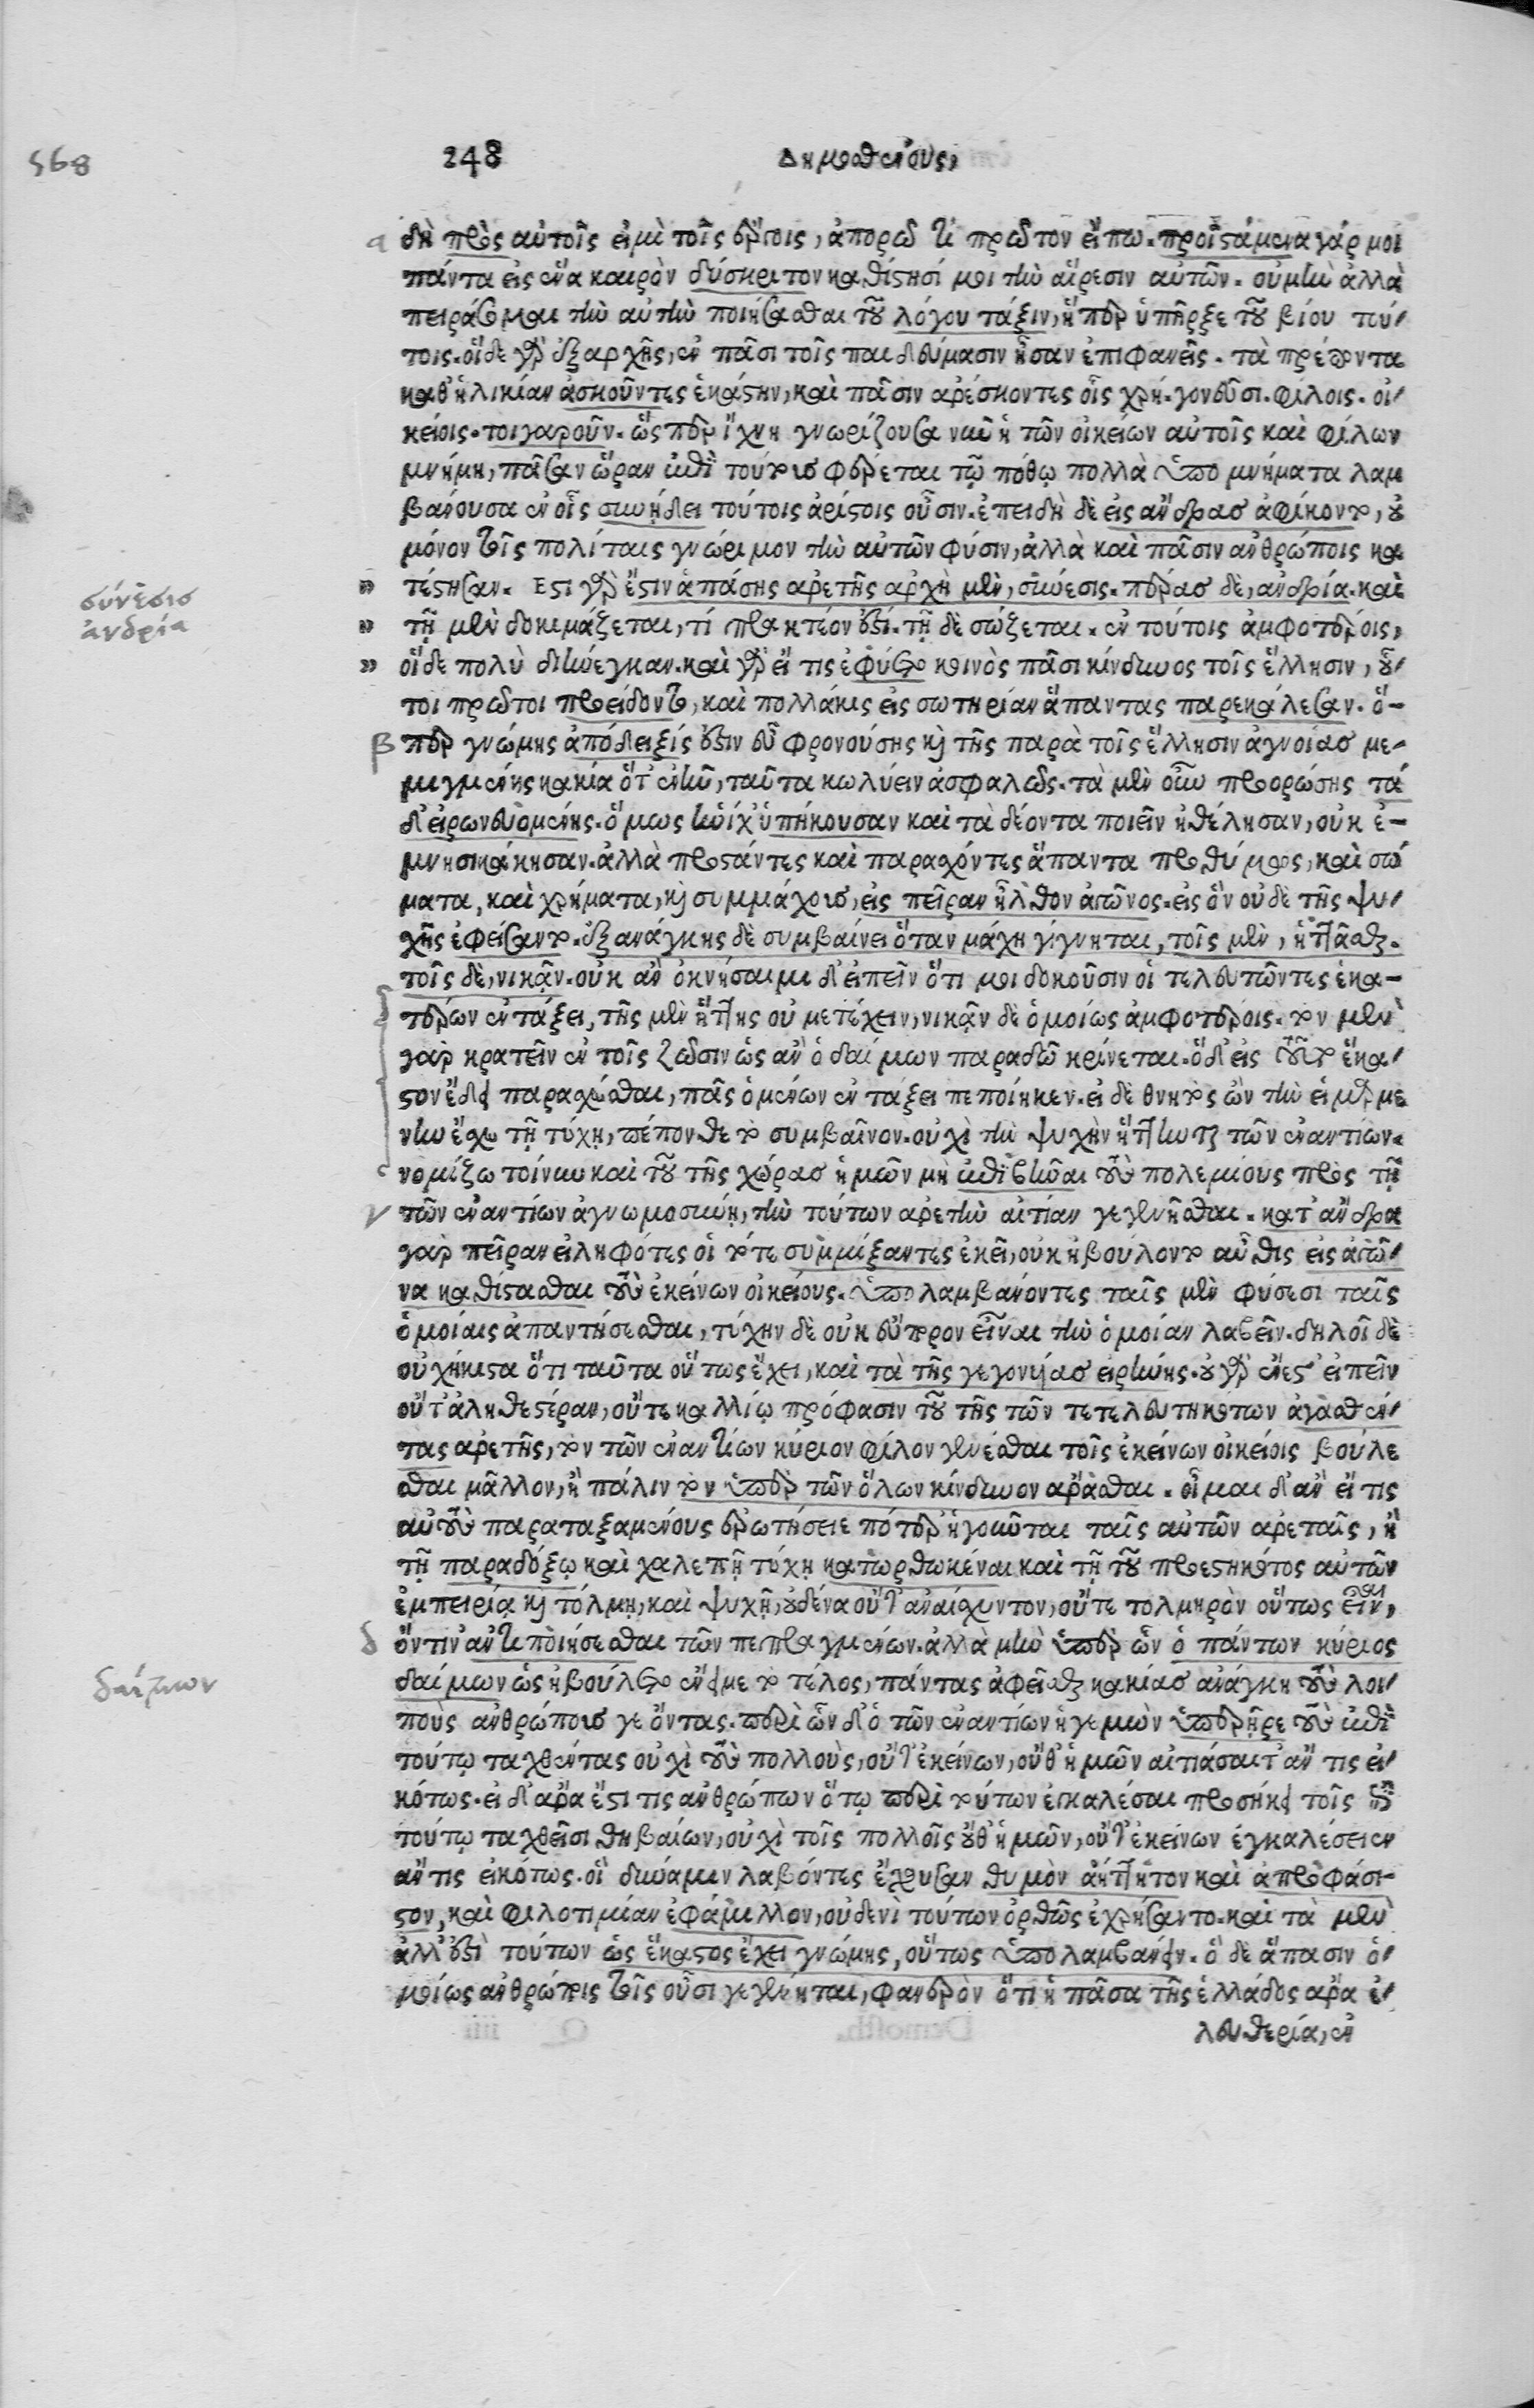 568
248 Δημοσθένους,
α δὴ πρὸς αὐτοῖς εἰμὶ τοῖς ἔργοις, ἀπορῶ τί πρῶτον εἴπω. προϊστάμενα γάρ μοι
πάντα εἰς ἕνα καιρὸν δύσκριτον καθίστησί μοι τὴν αἵρεσιν αὐτῶν. οὐ μὴν ἀλλὰ
πειράσομαι τὴν αὐτὴν ποιήσασθαι τοῦ λόγου τάξιν, ἥπερ ὑπῆρξε τοῦ βίου τού-
τοις. οἵδε γὰρ ἐξαρχῆς, ἐν πᾶσι τοῖς παιδεύμασιν ἦσαν ἐπιφανεῖς. τὰ πρέποντα
καθ' ἡλικίαν ἀσκοῦντες ἑκάστην, καὶ πᾶσιν ἀρέσκοντες οἷς χρή. γονεῦσι. φίλοις. οἰ-
κείοις. τοιγαροῦν. ὥσπερ ἴχνη γνωρίζουσα νῦν ἡ τῶν οἰκείων αὐτοῖς καὶ φίλων
μνήμη, πᾶσαν ὥραν ἐπὶ τούτους φέρεται τῷ πόθῳ πολλὰ ὑπομνήματα λαμ
βάνουσα ἐν οἷς συνῄδει τούτοις ἀρίστοις οὖσιν. ἐπειδὴ δὲ εἰς ἄνδρας ἀφίκοντο, οὐ
μόνον τοῖς πολίταις γνώριμον τὴν αὐτῶν φύσιν, ἀλλὰ καὶ πᾶσιν ἀνθρώποις κα
σύνεσισ
ἀνδρία
» τέστησαν. Ἔστι γὰρ ἔστιν ἁπάσης ἀρετῆς ἀρχὴ μὲν, σύνεσις. πέρας δὲ, ἀνδρία. καὶ
» τῇ μὲν δοκιμάζεται, τί πρακτέον ἐστί. τῇ δὲ σώζεται. ἐν τούτοις ἀμφοτέροις,
» οἵδε πολὺ διήνεγκαν. καὶ γὰρ εἴ τις ἐφύετο κοινὸς πᾶσι κίνδυνος τοῖς ἕλλησιν, οὗ-
τοι πρῶτοι προείδοντο, καὶ πολλάκις εἰς σωτηρίαν ἅπαντας παρεκάλεσαν. ὅ-
β περ γνώμης ἀπόδειξίς ἐστιν εὖ φρονούσης καὶ τῆς παρὰ τοῖς ἕλλησιν ἀγνοίας με-
μιγμένης κακία ὅτ' ἐνῆν, ταῦτα κωλύειν ἀσφαλῶς. τὰ μὲν οὖν προορώσης τά
δ' εἰρωνευομένης. ὅμως ἡνίχ' ὑπήκουσαν καὶ τὰ δέοντα ποιεῖν ἠθέλησαν, οὐκ ἐ-
μνησικάκησαν. ἀλλὰ προστάντες καὶ παρασχόντες ἅπαντα προθύμως, καὶ σώ
ματα, καὶ χρήματα, καὶ συμμάχους, εἰς πεῖραν ἦλθον ἀγῶνος. εἰς ὃν οὐδὲ τῆς ψυ-
χῆς ἐφείσαντο. ἐξ ανάγκης δὲ συμβαίνει ὅταν μάχη γίγνηται, τοῖς μὲν, ἡττᾶσθαι.
τοῖς δὲ, νικᾷν. οὐκ ἂν ὀκνήσαιμι δ' εἰπεῖν ὅτι μοι δοκοῦσιν οἱ τελευτῶντες ἑκα-
τέρων ἐν τάξει, τῆς μὲν ἥττης οὐ μετέχειν, νικᾷν δὲ ὁμοίως ἀμφοτέροις. τὸν μὲν
γὰρ κρατεῖν ἐν τοῖς ζῶσιν ὡς ἂν ὁ δαίμων παραδῶ κρίνεται. ὃ δ' εἰς τοῦτο ἕκα-
στον ἔδει παρασχέσθαι, πᾶς ὁ μένων ἐν τάξει πεποίηκεν. εἰ δὲ θνητὸς ὢν τὴν εἱμαρμέ
νην ἔσχε τῇ τύχῃ, πέπονθε τὸ συμβαῖνον. οὐχὶ τὴν ψυχὴν ἥττηται τῶν ἐναντίων.
νομίζω τοίνυν καὶ τοῦ τῆς χώρας ἡμῶν μὴ ἐπιβῆναι τοὺς πολεμίους πρὸς τῇ
γ τῶν ἐναντίων ἀγνωμοσύνῃ, τὴν τούτων ἀρετὴν αἰτίαν γεγενῆσθαι. κατ' ἄνδρα
γὰρ πεῖραν εἰληφότες οἱ τότε συμμίξαντες ἐκεῖ, οὐκ ἠβούλοντο αὖθις εἰς ἀγῶ-
να καθίστασθαι τοῖς ἐκείνων οἰκείους. ὑπολαμβάνοντες ταῖς μὲν φύσεσι ταῖς
ὁμοίαις ἀπαντήσεσθαι, τύχην δὲ οὐκ εὔπορον εἶναι τὴν ὁμοίαν λαβεῖν. δηλοῖ δὲ
οὐχήκιστα ὅτι ταῦτα οὕτως ἔχει, καὶ τὰ τῆς γεγονυίας εἰρήνης. οὐ γὰρ ἔνεστ' εἰπεῖν
οὔτ' ἀληθεστέραν, οὔτε καλλίω πρόφασιν τοῦ τῆς τῶν τετελευτηκότων ἀγασθέν-
τας ἀρετῆς, τὸν τῶν ἐναντίων κύριον φίλον γενέσθαι τοῖς ἐκείνων οἰκείοις βούλε
σθαι μᾶλλον, ἢ πάλιν τὸν ὑπὲρ τῶν ὅλων κίνδυνον ἄρασθαι. οἶμαι δ' ἂν εἴ τις
αὐτοὺς παραταξαμένους ἐρωτήσειε πότερ' ἡγοῦνται ταῖς αὑτῶν ἀρεταῖς, ἢ
τῇ παραδόξῳ καὶ χαλεπῇ τύχῃ κατωρθωκέναι καὶ τῇ τοῦ προεστηκότος αὐτῶν
ἐμπειρίᾳ καὶ τόλμῃ, καὶ ψυχῇ, οὐδένα οὔτ' ἀναίσχυντον, οὔτε τολμηρὸν οὕτως εἶναι,
δ ὅντιν' ἀντιποιήσεσθαι τῶν πεπραγμένων. ἀλλὰ μὴν ὑπὲρ ὧν ὁ πάντων κύριος
δαίμων
δαίμων ὡς ἠβούλετο ἔνειμε τὸ τέλος, πάντας ἀφεῖσθαι κακίας ἀνάγκη τοὺς λοι-
ποὺς ἀνθρώπους γε ὄντας. περὶ ὧν δ' ὁ τῶν ἐναντίων ἡγεμὼν ὑπερῆρε τοὺς ἐπὶ
τούτῳ ταχθέντας οὐχὶ τοὺς πολλοὺς, οὔτ' ἐκείνων, οὔθ' ἡμῶν αἰτιάσαιτ' ἄν τις εἰ-
κότως. εἰ δ' ἄρα ἔστι τις ἀνθρώπων ὅτῳ περὶ τούτων ἐγκαλέσαι προσήκει τοῖς ἐπὶ
τούτῳ ταχθεῖσι θηβαίων, οὐχὶ τοῖς πολλοῖς οὔθ' ἡμῶν, οὔτ' ἐκείνων ἐγκαλέσειεν
ἄν τις εἰκότως. οἳ δύναμιν λαβόντες ἔχουσαν θυμὸν ἀήττητον καὶ ἀπροφάσι-
στον, καὶ φιλοτιμίαν ἐφάμιλλον, οὐδενὶ τούτων ὀρθῶς ἐχρήσαντο. καὶ τὰ μὲν
ἄλλ' ἐστὶ τούτων ὡς ἕκαστος ἔχει γνώμης, οὕτως ὑπολαμβάνειν. ὃ δὲ ἅπασιν ὁ-
μοίως ἀνθρώποις τοῖς οὖσι γεγένηται, φανερὸν ὅτι ἡ πᾶσα τῆς ἑλλάδος ἄρα ἐ-
λευθερία, ἐν